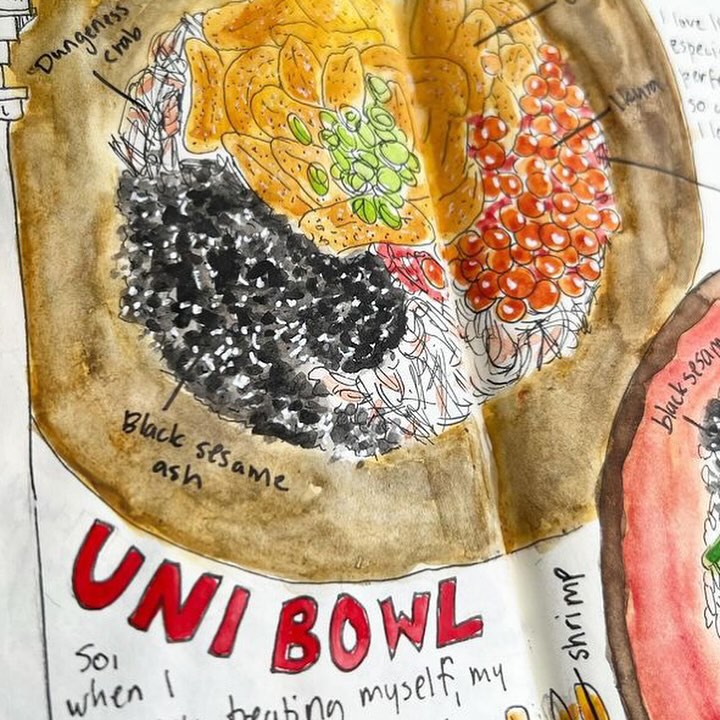 Dungeness
crab
I love
Ikura
Black sesame
ash
black sesam
UNI BOWL
shrimp
So,
when I
treating myself, my